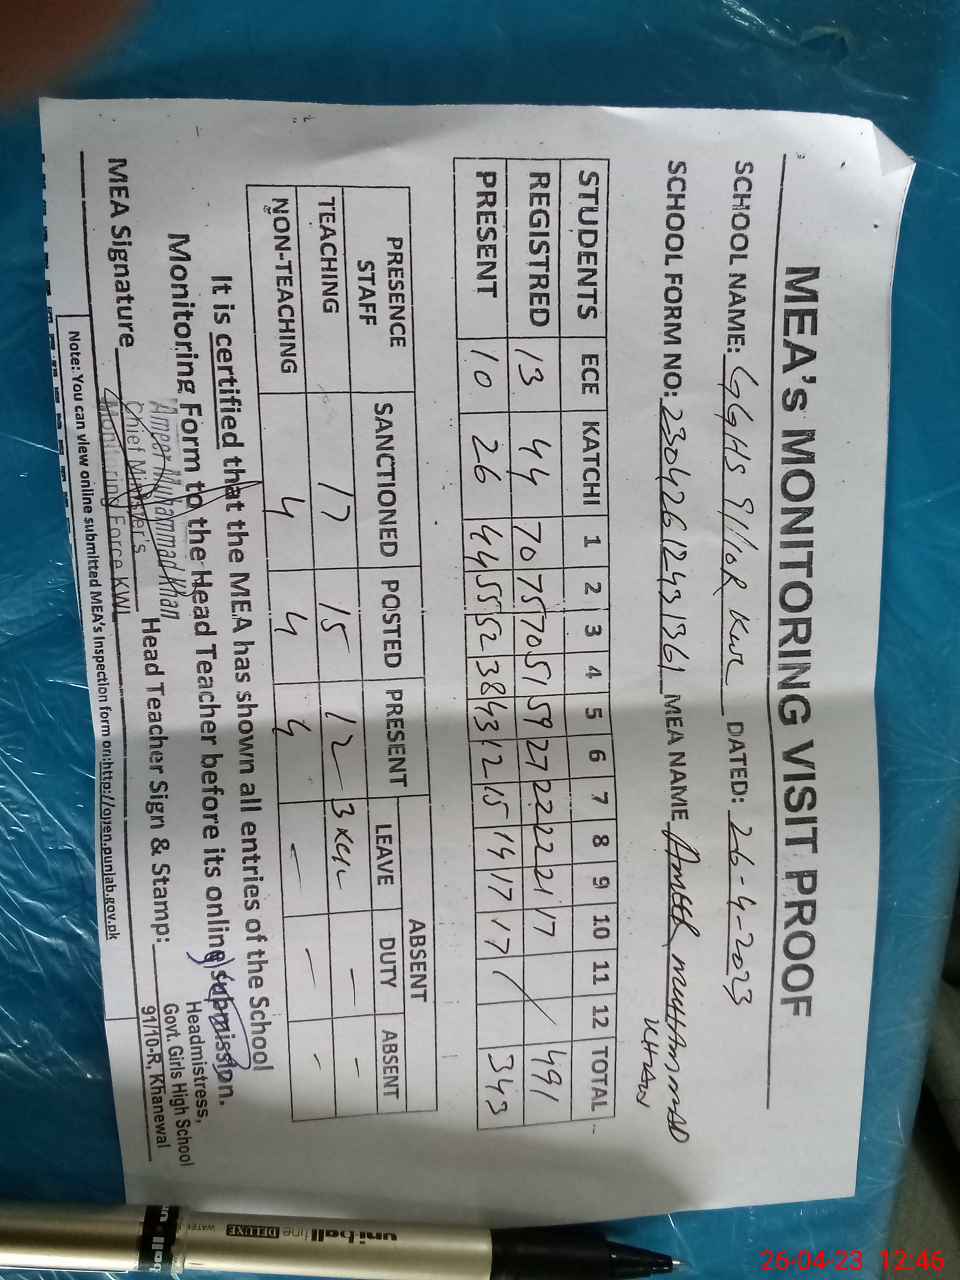 MEA's MONITORING VISIT PROOF
SCHOOL NAME: GGHS 91/10R KWL DATED: 26-4-2023
SCHOOL FORM NO: 23042612431361 MEA NAME AMEER MUHAMMAD
KHAN
STUDENTS ECE KATCHI 1 2 3 4 5 6 7 8 9 10 11 12 TOTAL
REGISTRED 13 44 70 75 70 51 59 27 22 22 21 17 / 491
PRESENT 10 26 44 55 52 38 43 12 15 14 17 17 / 343
PRESENCE STAFF SANCTIONED POSTED PRESENT ABSENT
LEAVE DUTY ABSENT
TEACHING 17 15 12 3 - -
NON-TEACHING 4 4 4 - - -
It is certified that the MEA has shown all entries of the School
Monitoring Form to the Head Teacher before its online submission.
Ameer Muhammad Khan
Chief Minister's
Monitoring Force KWL
MEA Signature Head Teacher Sign & Stamp:
Headmistress,
Govt. Girls High School
91/10-R, Khanewal
Note: You can view online submitted MEA's Inspection form on:http://open.punjab.gov.pk
uni-ball fine DELUXE
26-04-23 12:46